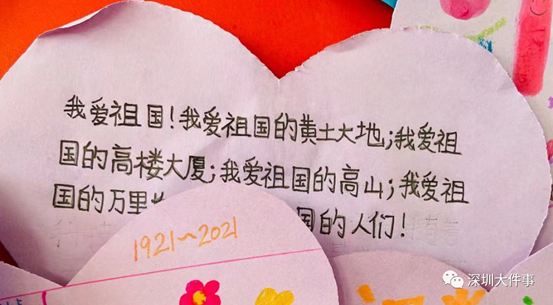 我爱祖国！我爱祖国的黄土大地；我爱祖
国的高楼大厦；我爱祖国的高山；我爱祖
国的万里
国的人们！
1921~2021
深圳大件事